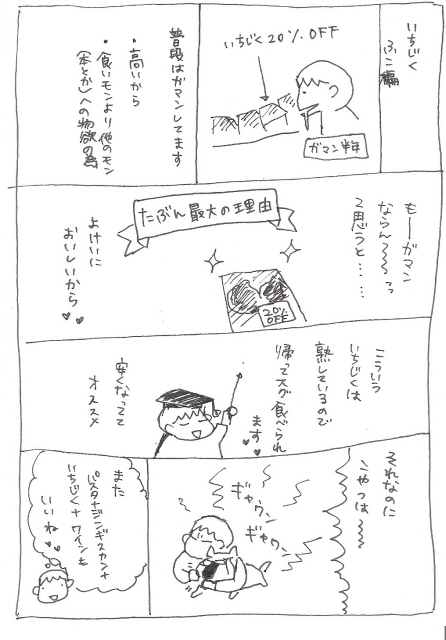 いちじく
ふこ編
いちじく20%OFF
ガマン半年
普段はガマンしてます
・高いから
・食いモンより他のモン
(本とか)への物欲の為
もーガマン
ならん〜〜っっ
て思うと……
たぶん最大の理由
20%
OFF
よけいに
おいしいから
こういう
いちじくは
熟しているので
帰ってスグ食べられ
ます
安くなってて
オススメ
それなのに
こやつは〜〜
ギャウン
ギャウン
また
パスタ+ジンギスカン+
いちじく+ワインも
いいね